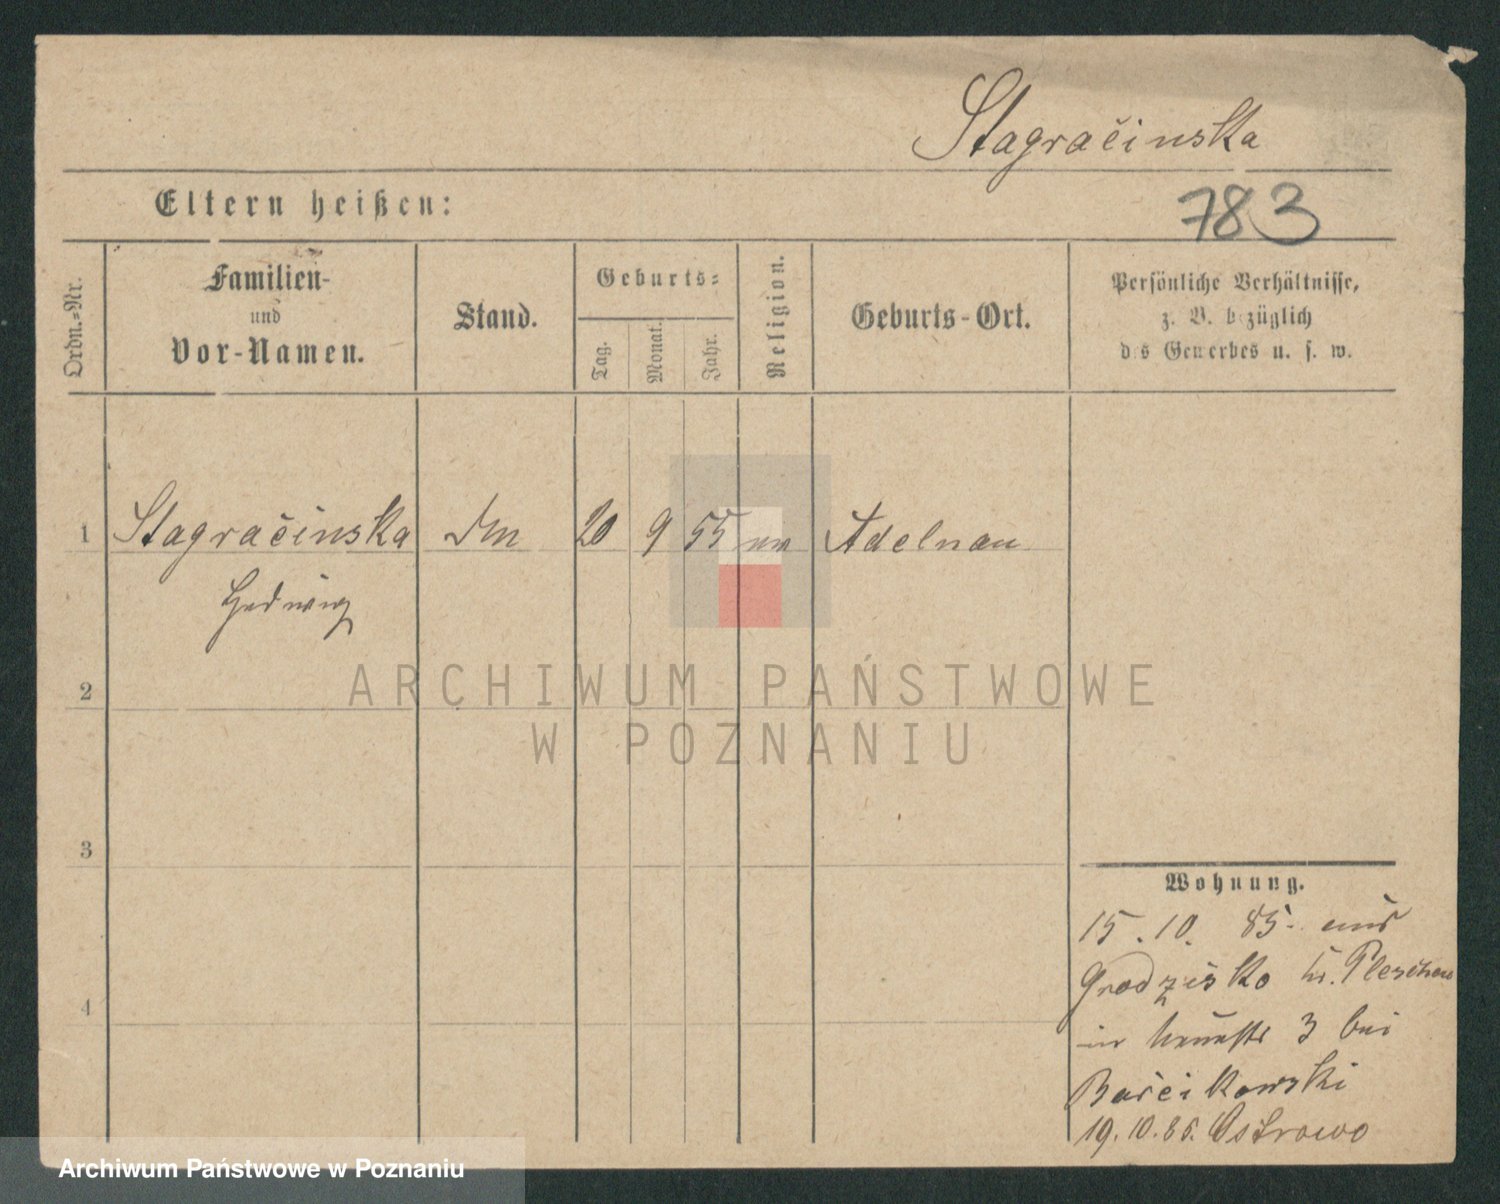 Stagračinska
Eltern heißen:
783
Ordn.-Nr.
Familien-
und
Vor-Namen.
Stand.
Geburts-
Tag.
Monat.
Jahr.
Religion.
Geburts-Ort.
Persönliche Verhältnisse,
z. B. bezüglich
des Gewerbes u. s. w.
1 Stagračinska 20 9 55 Adelnau
Hedwig
2
3
4
Wohnung.
15. 10. 85. aus
Grodzisko Kr. Pleschen
in 3 bei
Barcikowski
19. 10. 86. Ostrowo
ARCHIWUM PAŃSTWOWE
W POZNANIU
Archiwum Państwowe w Poznaniu